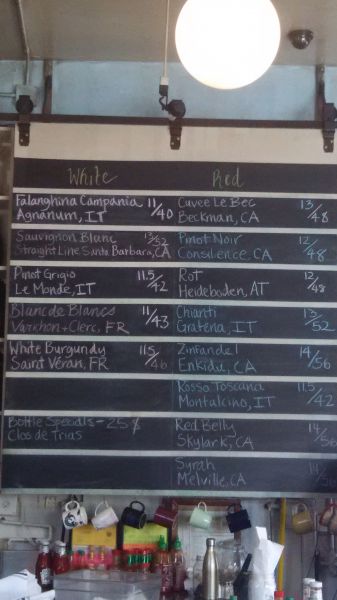 White
Red
Falanghina Campania 11/40
Agnanum, IT
Cuvee Le Bec 13/48
Beckman, CA
Sauvignon Blanc 13/52
Straight Line Santa Barbara, CA
Pinot Noir 12/48
Consilience, CA
Pinot Grigio 11.5/42
Le Monde, IT
Rot 12/48
Heideboden, AT
Blanc de Blancs 11/43
Varichon + Clerc, FR
Chianti 13/52
Gratena, IT
White Burgundy 11.5/46
Saint Véran, FR
Zinfandel 14/56
Enkidu, CA
Rosso Toscana 11.5/42
Montalcino, IT
Bottle Specials - 25 $
Clos de Trias
Red Belly 14/56
Skylark, CA
Syrah 14/56
Melville, CA